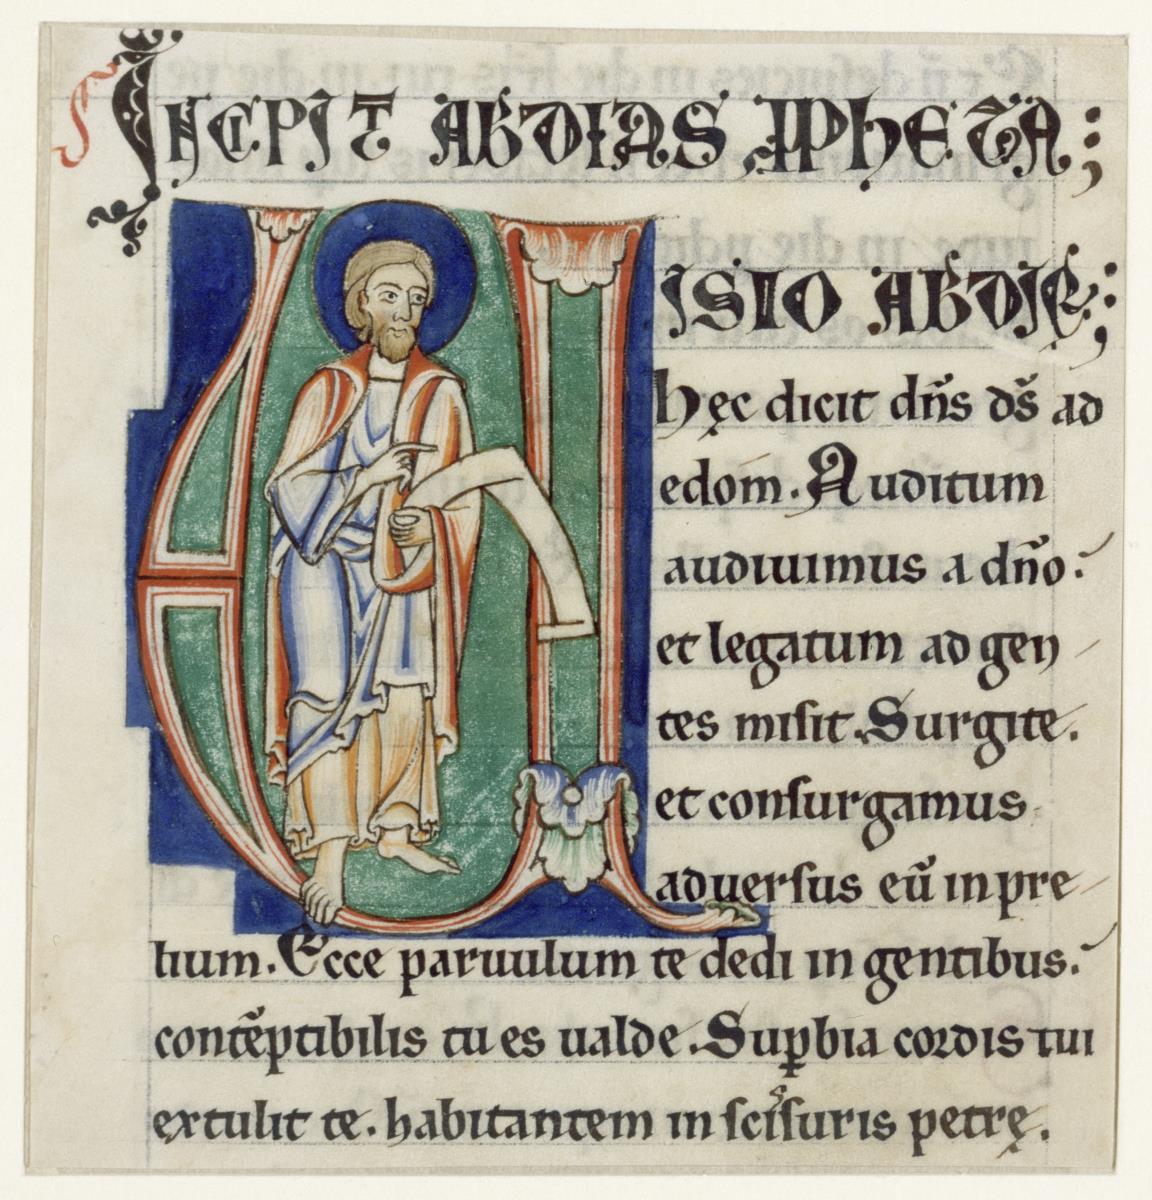 INCIPIT ABDIAS PPHETA;
VISIO ABDIĘ;
hęc dicit dñs ds̃ ad
edom. Auditum
audiuimus a dño.
et legatum ad gen
tes misit. Surgite.
et consurgamus
aduersus eũ in pre
lium. Ecce paruulum te dedi in gentibus.
contẽptibilis tu es ualde. Suꝑbia cordis tui
extulit te. habitantem in scisˢuris petrę.